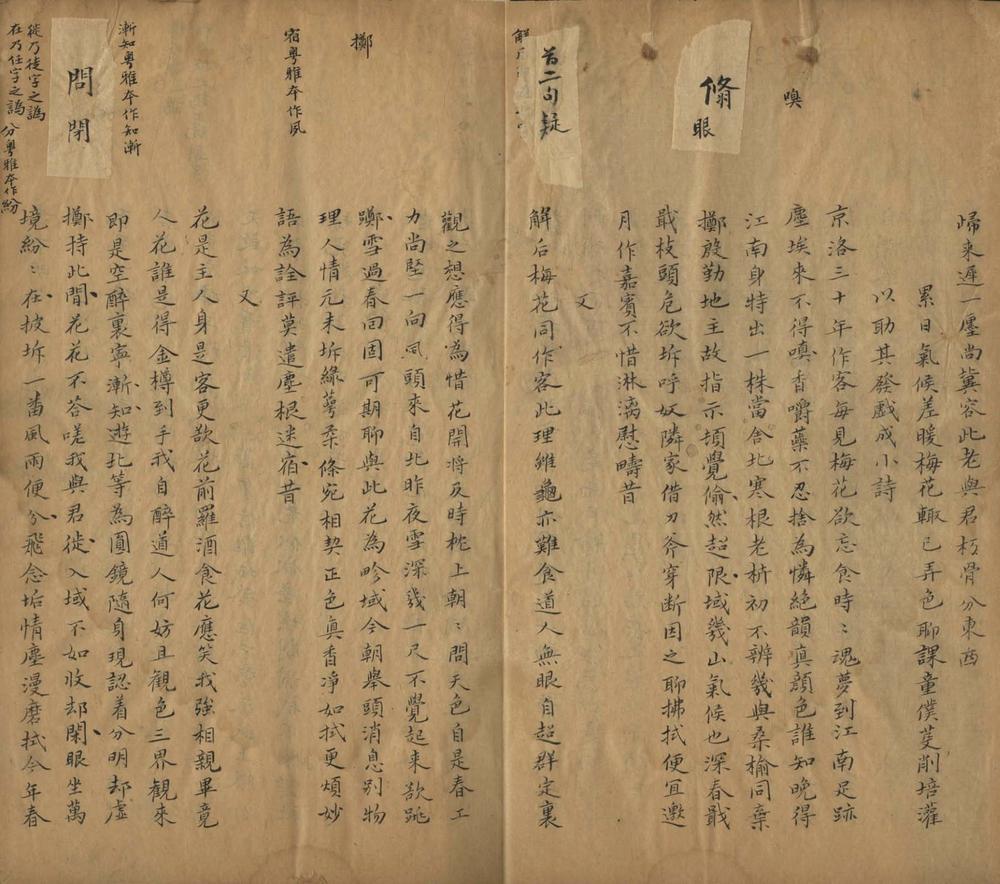 歸来遲一廛尚冀容此老與君朽骨分東西
累日氣候差暖梅花輙已弄色聊課童僕芟削培灌
以助其發戲成小詩
京洛三十年作客每見梅花欲忘食時〻魂夢到江南足跡
塵埃来不得嗅香嚼蘂不忍捨為憐絶韻真顔色誰知晚得
江南身特出一株當舍北寒根老枿初不辨幾與桑榆同棄
擲殷勤地主故指示頓覺翛然超限域幾山氣候也深春戢
戢枝頭危欲坼呼妖隣家借刀斧穿断因之聊拂拭便宜邀
月作嘉賓不惜淋漓慰疇昔
又
解后梅花同作客此理雖龜亦難食道人無眼自超群定裏
觀之想應得為惜花開将及時枕上朝〻問天色自是春工
力尚堅一向風頭来自北昨夜雪深幾一尺不覺起来欲跳
躑雪過春回固可期聊與此花為畛域今朝舉頭消息别物
理人情元未坼緑萼柔條宛相契正色真香净如拭更煩妙
語為詮評莫遣塵根迷宿昔
又
花是主人身是客更欲花前羅酒食花應笑我強相親畢竟
人花誰是得金樽到手我自醉道人何妨且觀色三界觀来
即是空醉裏寧漸知遊北等為圓鏡隨身現認着分明却虚
擲持此聞花花不答嗟我與君徙入域不如收却閑眼坐萬
境紛〻在披坼一番風雨便分飛念垢情塵漫磨拭今年春
嗅
翛
眼
首二句疑
擲
宿粤雅本作夙
漸知粤雅本作知漸
問
閉
徙乃徒字之譌
在乃任字之譌 分粤雅本作紛